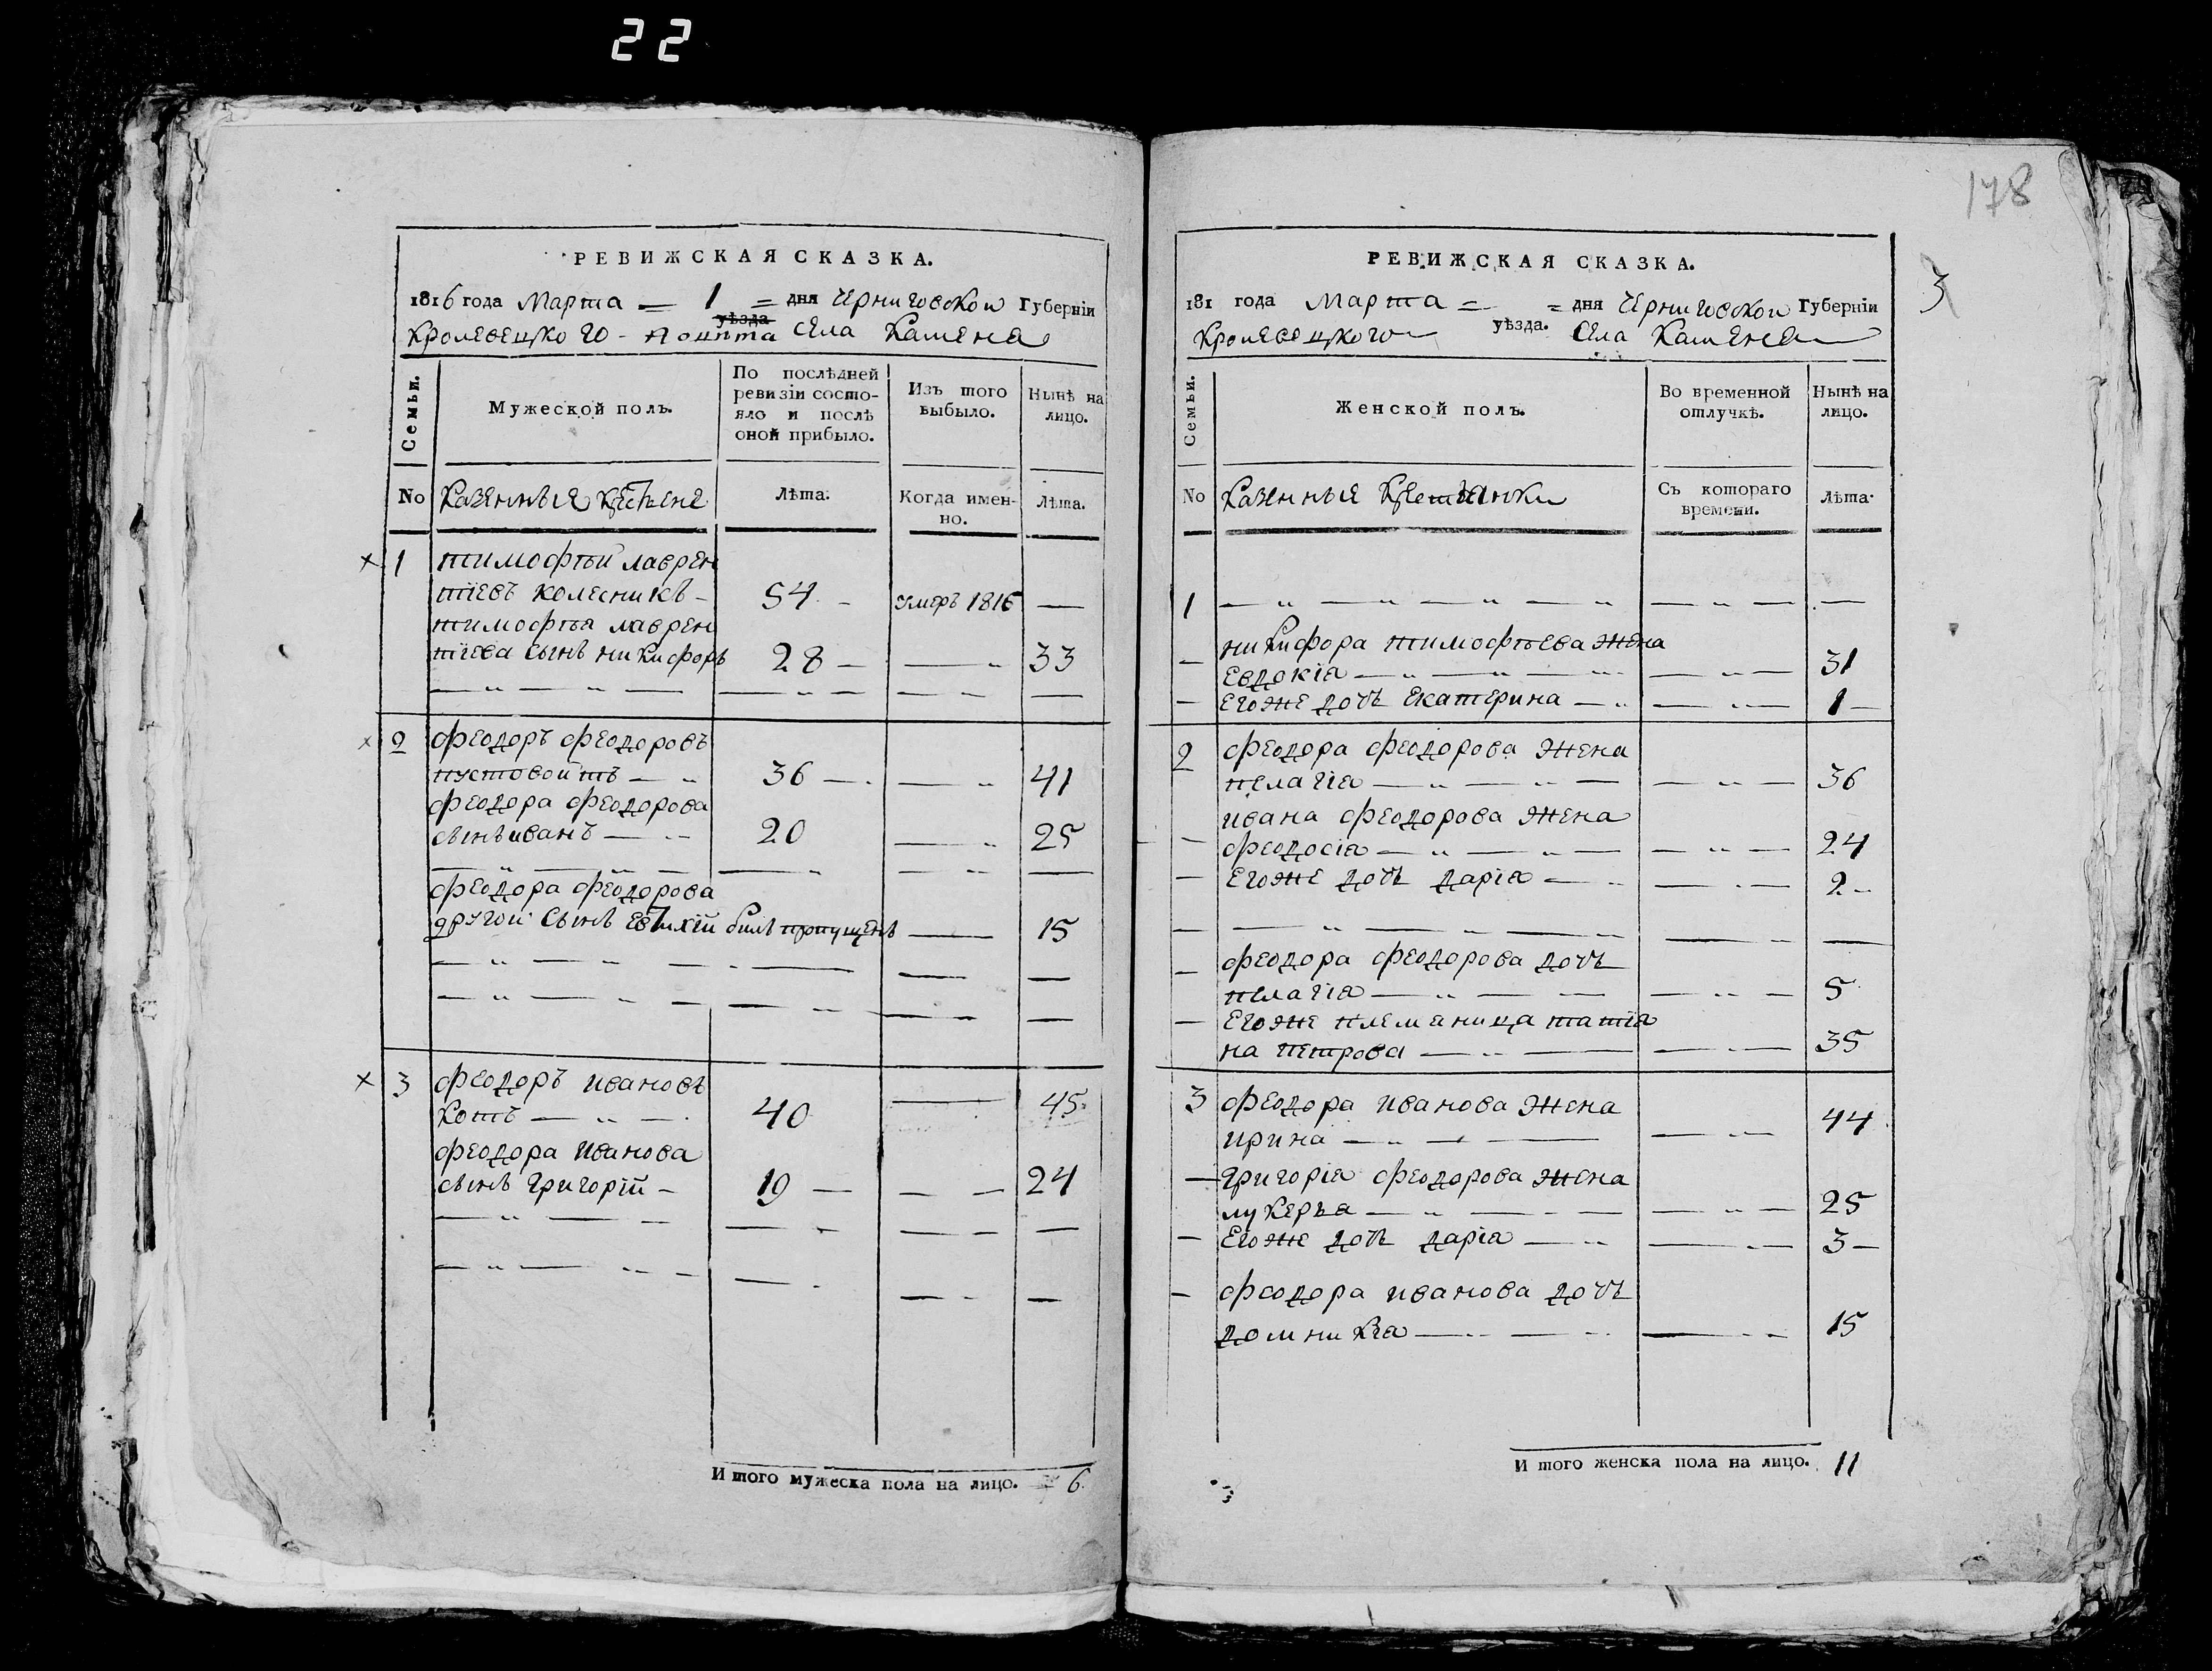 22
178
3
РЕВИЖСКАЯ СКАЗКА.
1816 года Марта — 1 = дня Черниговской Губерніи
уѣзда
Кролевецкого - Повѣта Села Каменя
Семьи.
Мужеской полъ.
По послѣдней ревизіи состояло и послѣ оной прибыло.
Изъ того выбыло.
Нынѣ на лицо.
No Казенные
Лѣта.
Когда именно.
Лѣта.
× 1 тимофѣй лаврен
тіевъ колесникъ – 54 – умеръ 1816 —
тимофѣя лаврен
тіева сынъ никифоръ 28 — — „ 33
× 2 феодоръ феодоровъ
пустовойтъ — „ 36 — — „ 41
феодора феодорова
сынъ иванъ — „ 20 — „ 25
феодора феодорова
другой сынъ Евтихій былъ пропущенъ — 15
× 3 феодоръ ивановъ
котъ — „ — 40 — 45
феодора иванова
сынъ григорій – 19 — — — 24
И того мужеска пола на лицо. 6.
РЕВИЖСКАЯ СКАЗКА.
181 года Марта = = дня Черниговской Губерніи
Кролевецкого уѣзда. Села Каменя
Семьи.
Женской полъ.
Во временной отлучкѣ.
Нынѣ на лицо.
No Казенные
Съ котораго времени.
Лѣта.
1 — „ — „ — „ — „ — „ — —
— никифора тимофѣева жена
Евдокія — „ — „ — — „ — 31
— Егоже дочь Екатерина — „ — „ — 1 —
2 феодора феодорова жена
пелагія — „ — „ — — „ — 36
— ивана феодорова жена
феодосія — „ — „ — — „ — 24
— Егоже дочь дарія — „ — „ — 2 –
— феодора феодорова дочь
пелагія — „ — — — „ — 5
— Егоже племеница татія
на петрова — „ — — „ — 35
3 феодора иванова жена
ирина — „ — — — „ 44
— григорія феодорова жена
лукерья — „ — — — „ — 25
— Егоже дочь дарія — „ — „ — 3 —
— феодора иванова дочь
домникіа — „ — „ — „ 15
И того женска пола на лицо. 11